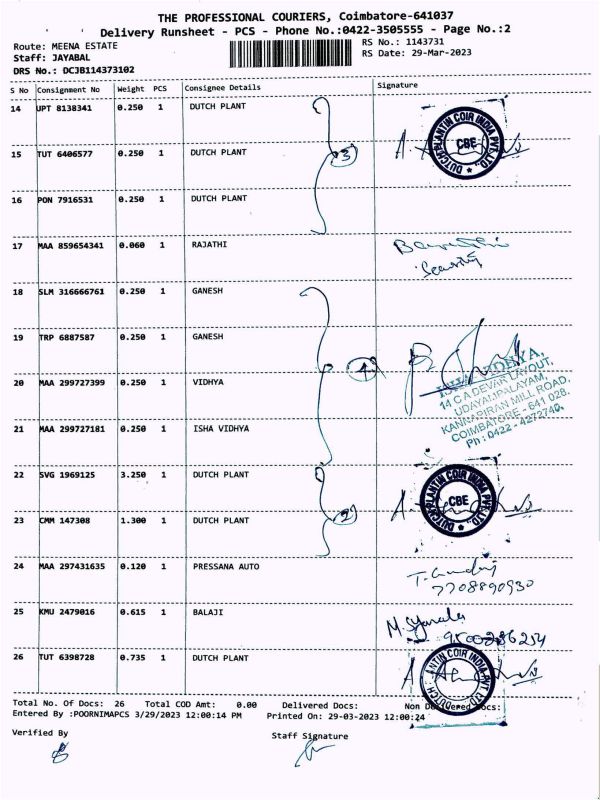 THE PROFESSIONAL COURIERS, Coimbatore-641037
Delivery Runsheet - PCS - Phone No.:0422-3505555 - Page No.:2
Route: MEENA ESTATE RS No.: 1143731
Staff: JAYABAL RS Date: 29-Mar-2023
DRS No.: DCJB114373102
S No Consignment No Weight PCS Consignee Details Signature
14 UPT 8138341 0.250 1 DUTCH PLANT
15 TUT 6406577 0.250 1 DUTCH PLANT 3 DUTCHPLANTIN COIR INDIA PVT. LTD. CBE
16 PON 7916531 0.250 1 DUTCH PLANT
17 MAA 859654341 0.060 1 RAJATHI
Security
18 SLM 316666761 0.250 1 GANESH
19 TRP 6887587 0.250 1 GANESH
20 MAA 299727399 0.250 1 VIDHYA 4 VIDHYA,
14 C A DEVAR LAYOUT,
UDAYAMPALAYAM,
KANNAPIRAN MILL ROAD,
COIMBATORE - 641 028.
Ph: 0422 - 4272740.
21 MAA 299727181 0.250 1 ISHA VIDHYA
22 SVG 1969125 3.250 1 DUTCH PLANT
23 CMM 147308 1.300 1 DUTCH PLANT 2 DUTCHPLANTIN COIR INDIA PVT. LTD. CBE
24 MAA 297431635 0.120 1 PRESSANA AUTO
7708890930
25 KMU 2479016 0.615 1 BALAJI
9500286254
26 TUT 6398728 0.735 1 DUTCH PLANT DUTCH ANTIN COIR INDIA PVT LTD
Total No. Of Docs: 26 Total COD Amt: 0.00 Delivered Docs: Non Delivered Docs:
Entered By :POORNIMAPCS 3/29/2023 12:00:14 PM Printed On: 29-03-2023 12:00:24
Verified By Staff Signature